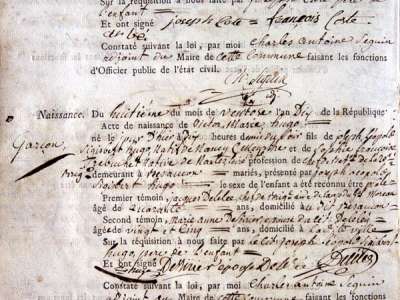 Sur la réquisition à nous faite par
l'enfant
Et ont signé joseph Cote françois Corte
Constaté suivant la loi, par moi Charles Antoine Seguin
adjoint du Maire de cette commune faisant les fonctions
d'Officier public de l'état civil.
Naissance. Du huitième du mois de ventose l'an Dix de la République
Garcon. Acte de naissance de Victor Marie hugo
né le jour D'hier à Dix heures demi du soir fils de joseph Léopold
Sigisbert hugo natif de Nancy et de Sophie françoise
Trebuchet native de Nantes profession de chef de
demeurant à Besancon mariés, présenté par joseph Léopold
Sigisbert hugo le sexe de l'enfant a été reconnu être mâle
Premier témoin, Jacques Delelée chef de brigade aide de camp
âgé de quarante ans, domicilié au dit Besancon
Second témoin, Marie anne Dessirier epouse du cit Delelée
âgée de vingt et cinq ans, domiciliée à la dite ville
Sur la réquisition à nous faite par le cit joseph Léopold Sigisbert
hugo père de l'enfant
Et ont signé hugo Dessirier epouse Delelée Delelée
Constaté suivant la loi, par moi Charles Antoine Seguin
adjoint du Maire de cette commune faisant les fonctions